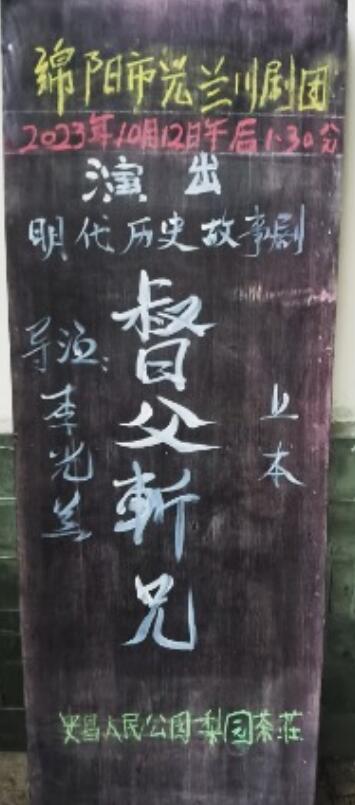 绵阳市光兰川剧团
2023年10月12日午后1·30分
演出
明代历史故事剧
导演：李光兰
督父斬兄
上本
昌人民公园梨园茶荘